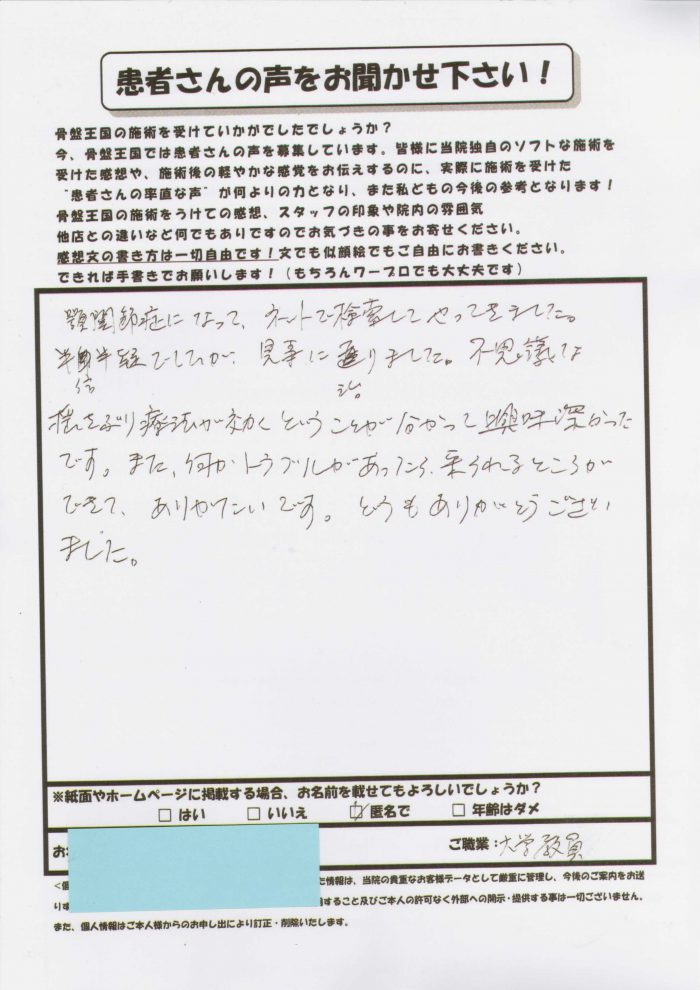 患者さんの声をお聞かせ下さい！
骨盤王国の施術を受けていかがでしたでしょうか？
今、骨盤王国では患者さんの声を募集しています。皆様に当院独自のソフトな施術を
受けた感想や、施術後の軽やかな感覚をお伝えするのに、実際に施術を受けた
"患者さんの率直な声"が何よりの力となり、また私どもの今後の参考となります！
骨盤王国の施術をうけての感想、スタッフの印象や院内の雰囲気
他店との違いなど何でもありですのでお気づきの事をお寄せください。
感想文の書き方は一切自由です！文でも似顔絵でもご自由にお書きください。
できれば手書きでお願いします！（もちろんワープロでも大丈夫です）
顎関節症になって、ネットで検索してやってきました。
半信半疑でしたが、見事に治りました。不思議な
揺さぶり療法が効くということが分かって興味深かった
です。また、何かトラブルがあったら、来られるところが
できて、ありがたいです。どうもありがとうござい
ました。
※紙面やホームページに掲載する場合、お名前を載せてもよろしいでしょうか？
□ はい □ いいえ ☑ 匿名で □ 年齢はダメ
お
ご職業：大学教員
<個 た情報は、当院の貴重なお客様データとして厳重に管理し、今後のご案内をお送
りす すること及びご本人の許可なく外部への開示・提供する事は一切ございません。
また、個人情報はご本人様からのお申し出により訂正・削除いたします。